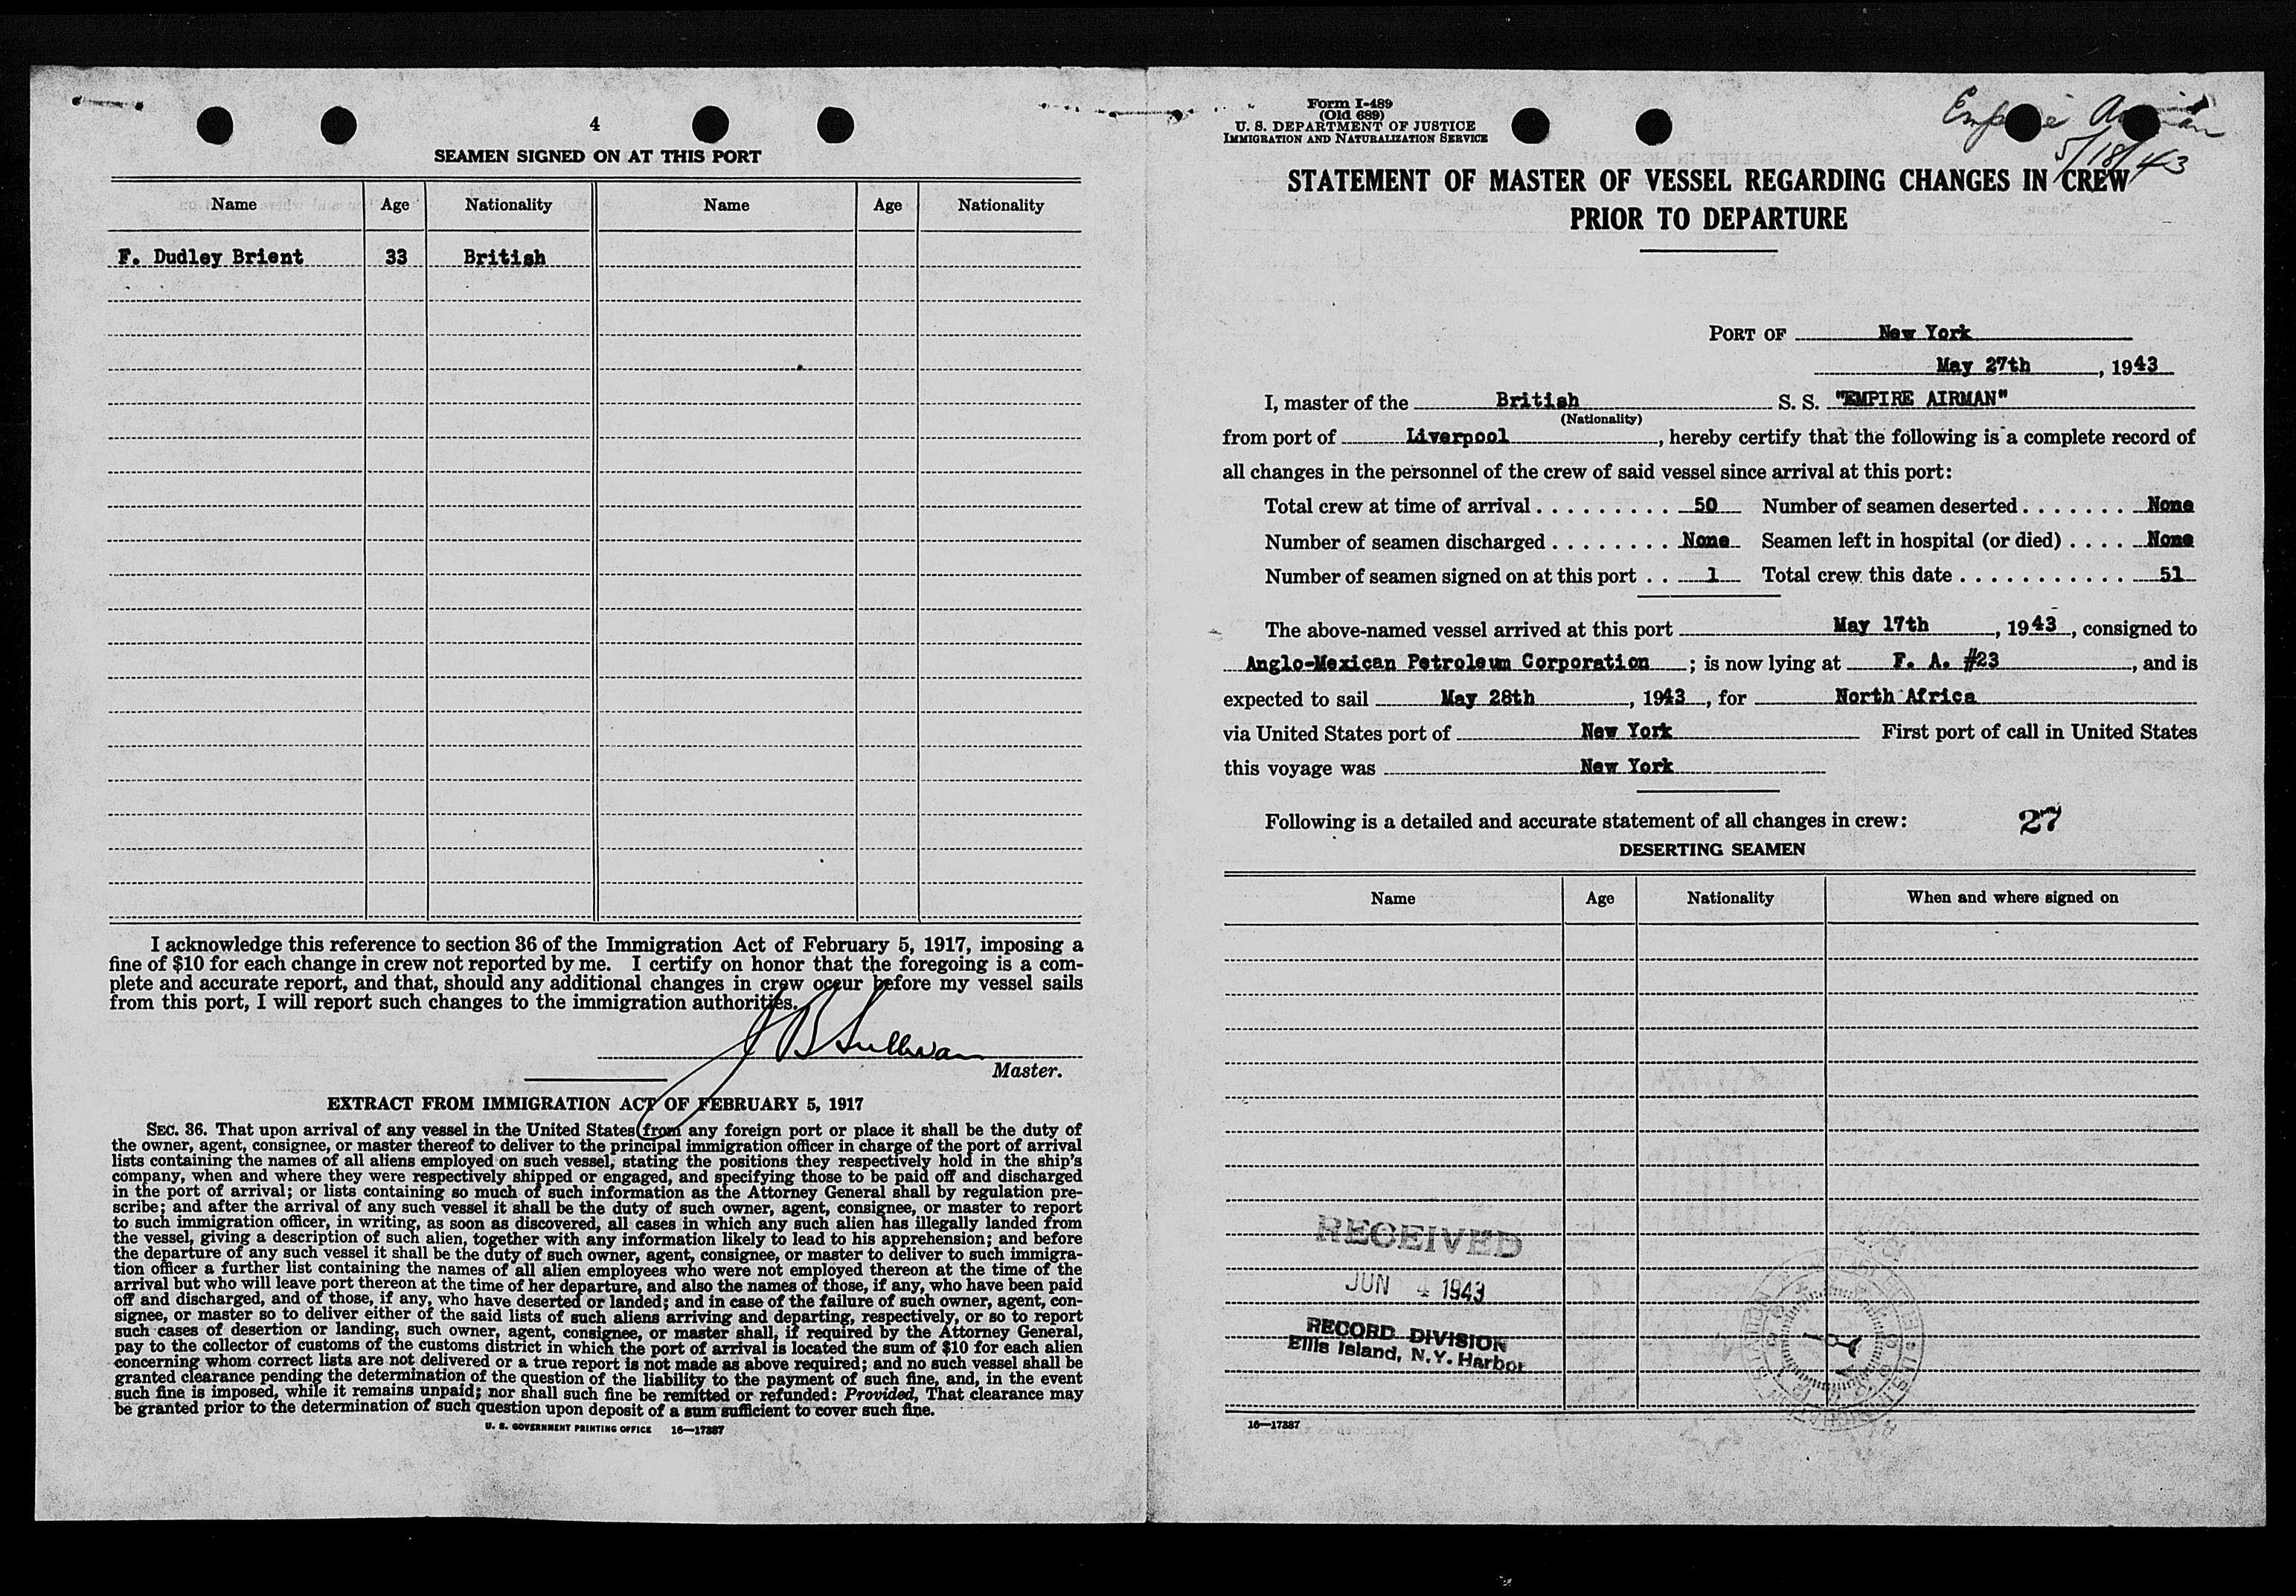 4
SEAMEN SIGNED ON AT THIS PORT
Name Age Nationality Name Age Nationality
F. Dudley Brient 33 British
I acknowledge this reference to section 36 of the Immigration Act of February 5, 1917, imposing a
fine of $10 for each change in crew not reported by me. I certify on honor that the foregoing is a com-
plete and accurate report, and that, should any additional changes in crew occur before my vessel sails
from this port, I will report such changes to the immigration authorities.
J B Sullivan
Master.
EXTRACT FROM IMMIGRATION ACT OF FEBRUARY 5, 1917
SEC. 36. That upon arrival of any vessel in the United States from any foreign port or place it shall be the duty of
the owner, agent, consignee, or master thereof to deliver to the principal immigration officer in charge of the port of arrival
lists containing the names of all aliens employed on such vessel, stating the positions they respectively hold in the ship's
company, when and where they were respectively shipped or engaged, and specifying those to be paid off and discharged
in the port of arrival; or lists containing so much of such information as the Attorney General shall by regulation pre-
scribe; and after the arrival of any such vessel it shall be the duty of such owner, agent, consignee, or master to report
to such immigration officer, in writing, as soon as discovered, all cases in which any such alien has illegally landed from
the vessel, giving a description of such alien, together with any information likely to lead to his apprehension; and before
the departure of any such vessel it shall be the duty of such owner, agent, consignee, or master to deliver to such immigra-
tion officer a further list containing the names of all alien employees who were not employed thereon at the time of the
arrival but who will leave port thereon at the time of her departure, and also the names of those, if any, who have been paid
off and discharged, and of those, if any, who have deserted or landed; and in case of the failure of such owner, agent, con-
signee, or master so to deliver either of the said lists of such aliens arriving and departing, respectively, or so to report
such cases of desertion or landing, such owner, agent, consignee, or master shall, if required by the Attorney General,
pay to the collector of customs of the customs district in which the port of arrival is located the sum of $10 for each alien
concerning whom correct lists are not delivered or a true report is not made as above required; and no such vessel shall be
granted clearance pending the determination of the question of the liability to the payment of such fine, and, in the event
such fine is imposed, while it remains unpaid; nor shall such fine be remitted or refunded: Provided, That clearance may
be granted prior to the determination of such question upon deposit of a sum sufficient to cover such fine.
U. S. GOVERNMENT PRINTING OFFICE 16—17387
Form I-489
(Old 689)
U. S. DEPARTMENT OF JUSTICE
IMMIGRATION AND NATURALIZATION SERVICE
Empire Airman
5/18/43
STATEMENT OF MASTER OF VESSEL REGARDING CHANGES IN CREW
PRIOR TO DEPARTURE
PORT OF New York
May 27th, 1943
I, master of the British S. S. "EMPIRE AIRMAN"
(Nationality)
from port of Liverpool, hereby certify that the following is a complete record of
all changes in the personnel of the crew of said vessel since arrival at this port:
Total crew at time of arrival . . . . . . . . . 50 Number of seamen deserted . . . . . . . None
Number of seamen discharged . . . . . . . . None Seamen left in hospital (or died) . . . . None
Number of seamen signed on at this port . . 1 Total crew this date . . . . . . . . . . . 51
The above-named vessel arrived at this port May 17th, 1943, consigned to
Anglo-Mexican Petroleum Corporation; is now lying at F. A. #23, and is
expected to sail May 28th, 1943, for North Africa
via United States port of New York First port of call in United States
this voyage was New York
Following is a detailed and accurate statement of all changes in crew: 27
DESERTING SEAMEN
Name Age Nationality When and where signed on
RECEIVED
JUN 4 1943
RECORD DIVISION
Ellis Island, N.Y. Harbor
16—17387